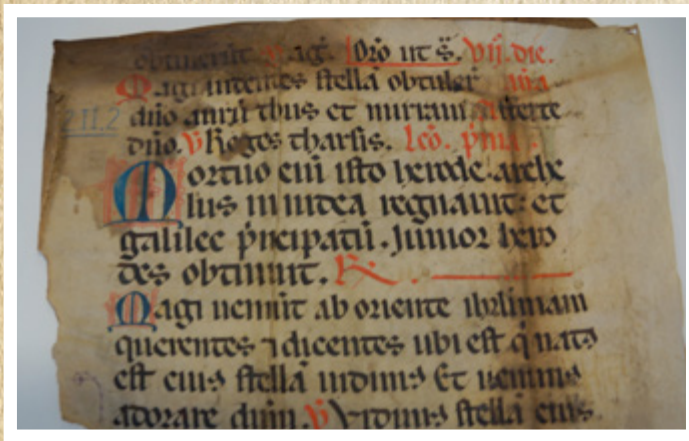 obtinerit. Mag̃. Oro ut s̃. vii. die.
Magi uidentes stellã obtuler̃
dño aurũ thus et mirram Afferte
dño. v Reges tharsis. leõ. prima.
Mortuo eni isto herode. arche
lius in iudea regnauit: et
galilee p̃ncipatũ. Junior hero
des obtinuit. R.
Magi uenerũt ab oriente ihrlimam
querentes ⁊ dicentes ubi est q̃ natꝰ
est cuiꝰ stellã uidimꝰ Et uenimꝰ
adorare dñm. v Vidimꝰ stellã eius.
211.2